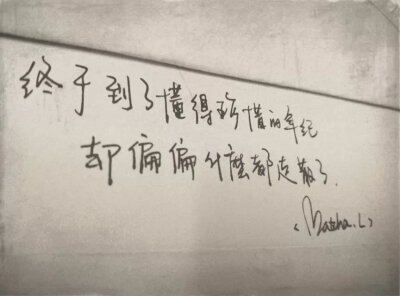 终于到了懂得珍惜的年纪
却偏偏什麼都走散了.
<Matcha.L>